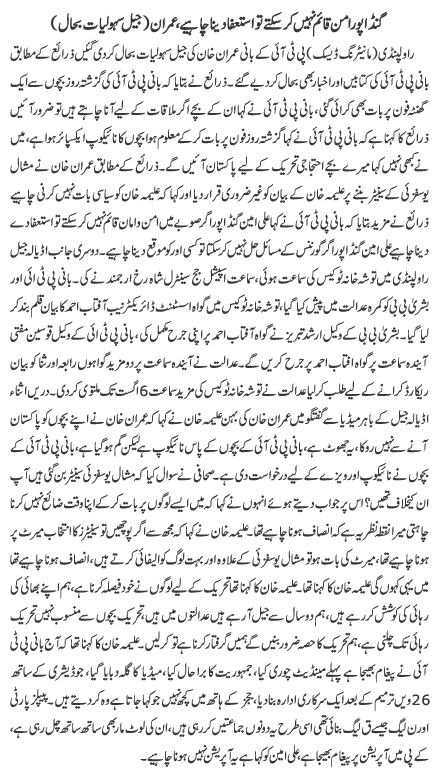 گنڈا پور امن قائم نہیں کر سکتے تو استعفا دینا چاہیے، عمران (جیل سہولیات بحال)
راولپنڈی (مانیٹرنگ ڈیسک) پی ٹی آئی کے بانی عمران خان کی جیل سہولیات بحال کردی گئیں ذرائع کے مطابق
بانی پی ٹی آئی کی کتابیں اور اخبار بھی بحال کر دیے گئے۔ ذرائع نے بتایا کہ بانی پی ٹی آئی کی گزشتہ روز بچوں سے ایک
گھنٹہ فون پر بات بھی کرائی گئی، بانی پی ٹی آئی نے کہا ان کے بچے اگر ملاقات کے لیے آنا چاہتے ہیں تو ضرور آئیں
ذرائع کا کہنا ہے کہ بانی پی ٹی آئی نے کہا گزشتہ روز فون پر بات کر کے معلوم ہوا بچوں کا نائیکوپ ایکسپائر ہوا ہے، میں
نے بھی نہیں کہا میرے بچے احتجاجی تحریک کے لیے پاکستان آئیں گے۔ ذرائع کے مطابق عمران خان نے مشال
یوسفزئی کے سینیٹر بننے پر علیمہ خان کے بیان کو غیر ضروری قرار دیا اور کہا کہ علیمہ خان کو سیاسی بات نہیں کرنی چاہیے
ذرائع نے مزید بتایا کہ بانی پی ٹی آئی نے کہا علی امین گنڈا پور اگر صوبے میں امن و امان قائم نہیں کر سکتے تو استعفا دے
دینا چاہیے علی امین گنڈا پور اگر گورننس کے مسائل حل نہیں کر سکتا تو کسی اور کو موقع دینا چاہیے۔ دوسری جانب اڈیالہ جیل
راولپنڈی میں توشہ خانہ ٹو کیس کی سماعت ہوئی، سماعت اسپیشل جج سینٹرل شاہ رخ ارجمند نے کی۔ بانی پی ٹی آئی اور
بشریٰ بی بی کو کمرہ عدالت میں پیش کیا گیا، توشہ خانہ ٹو کیس میں گواہ اسسٹنٹ ڈائریکٹر نیب آفتاب احمد کا بیان قلم بند کر
لیا گیا۔ بشریٰ بی بی کے وکیل ارشد تبریز نے گواہ آفتاب احمد پر اپنی جرح مکمل کی، بانی پی ٹی آئی کے وکیل قوسین مفتی
آیندہ سماعت پر گواہ آفتاب احمد پر جرح کریں گے۔ عدالت نے آیندہ سماعت پر دو مزید گواہوں رابعہ اور ثنا کو بیان
ریکارڈ کرانے کے لیے طلب کر لیا عدالت نے توشہ خانہ ٹو کیس کی مزید سماعت 6 اگست تک ملتوی کر دی۔ دریں اثناء
اڈیالہ جیل کے باہر میڈیا سے گفتگو میں عمران خان کی بہن علیمہ خان نے کہا کہ عمران خان نے اپنے بچوں کو پاکستان
آنے سے نہیں روکا، یہ جھوٹ ہے، بانی پی ٹی آئی کے بچوں کے پاس نائیکوپ ہے لیکن گم ہو گیا ہے، بانی پی ٹی آئی کے
بچوں نے نائیکوپ اور ویزے کے لیے درخواست دی ہے۔ صحافی نے سوال کیا کہ مشال یوسفزئی سینیٹر بن گئی ہیں آپ
ان کیخلاف تھیں؟ اس پر جواب دیتے ہوئے انہوں نے کہا کہ میں ایسے لوگوں پر بات کر کے اپنا وقت ضائع نہیں کرنا
چاہتی میرا نقطہ نظر یہ ہے کہ انصاف ہونا چاہیے تھا۔ علیمہ خان نے کہا کہ مجھ سے اگر پوچھیں تو سینیٹرز کا انتخاب میرٹ پر
ہونا چاہیے تھا، میرٹ کی بات ہو تو مشال یوسفزئی کے علاوہ اور بہت لوگ کوالیفائی کرتے ہیں، انصاف ہونا چاہیے تھا
میں یہی کہوں گی علیمہ خان کا کہنا تھا تحریک کے لیے لوگوں نے خود فیصلہ کرنا ہے، ہم اپنے بھائی کی
رہائی کی کوشش کر رہے ہیں، ہم دو سال سے جیل آ رہے ہیں عدالتوں میں ہیں، تحریک بچوں سے منسوب نہیں تحریک
رہائی تک چلنی ہے، ہم تحریک کا حصہ ضرور بنیں گے ہمیں گرفتار کرنا ہے تو کر لیں۔ علیمہ خان کا کہنا تھا کہ آج بانی پی ٹی
آئی نے پیغام بھیجا ہے پہلے مینڈیٹ چوری کیا، جمہوریت کا برا حال کیا، میڈیا کا گلہ دبایا گیا، جوڈیشری کے ساتھ
26 ویں ترمیم کے بعد ایک سرکاری ادارہ بنا دیا، ججز کے ہاتھ میں کچھ نہیں جو کہا جاتا ہے وہ کر دیتے ہیں۔ پیپلز پارٹی
اور ن لیگ جیسے ق لیگ بنائی تھی اسی طرح یہ دونوں جماعتیں کر رہی ہیں، ان کی لوٹ مار بھی ساتھ ساتھ چل رہی ہے،
کے پی میں آپریشن پر پیغام بھیجا ہے، علی امین کو کہا ہے یہ آپریشن نہیں ہونا چاہیے۔